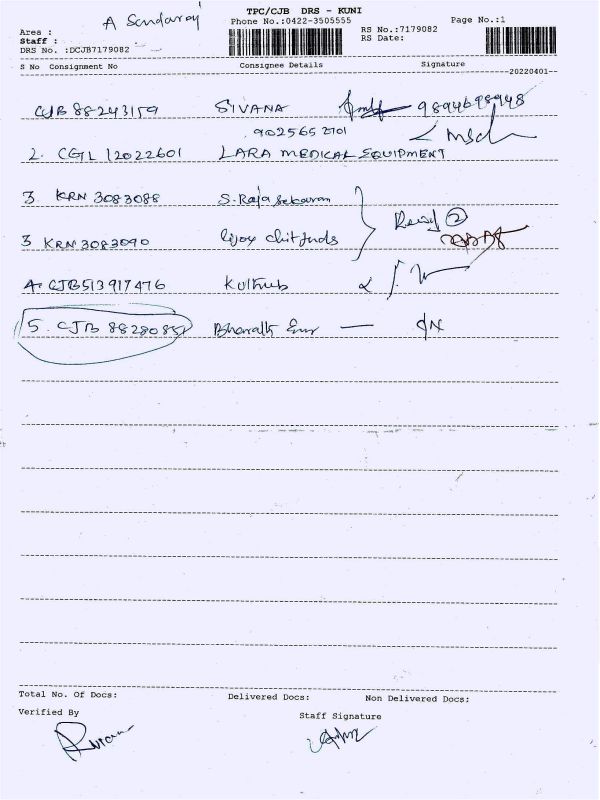 TPC/CJB DRS - KUNI
A Sundaraj
Phone No.:0422-3505555
Page No.:1
Area :
RS No.:7179082
Staff :
RS Date:
DRS No. :DCJB7179082
S No Consignment No Consignee Details Signature
--20220401--
CJB 88243159 SIVANA 9894698948
9025652701
2. CGL 12022601 LARA MEDICAL EQUIPMENT
3 KRN 3083088 S. Rajasekaran
3 KRN 3083090 chit funds
4. CJB513917476
5. CJB 88280851 Bharath
Total No. Of Docs: Delivered Docs: Non Delivered Docs:
Verified By Staff Signature